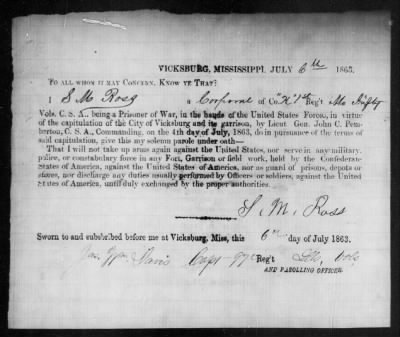 VICKSBURG, MISSISSIPPI, JULY 6th 1863.
TO ALL WHOM IT MAY CONCERN, KNOW YE THAT:
I S M Ross a Corporal of Co. "K" 1st Reg't Mo
Vols. C. S. A., being a Prisoner of War, in the hands of the United States Forces, in virtue
of the capitulation of the City of Vicksburg and its garrison, by Lieut. Gen. John C. Pem-
berton, C. S. A., Commanding, on the 4th day of July, 1863, do in pursuance of the terms of
said capitulation, give this my solemn parole under oath—
That I will not take up arms again against the United States, nor serve in any military,
police, or constabulary force in any Fort, Garrison or field work, held by the Confederate
States of America, against the United States of America, nor as guard of prisons, depots or
stores, nor discharge any duties usually performed by Officers or soldiers, against the United
States of America, until duly exchanged by the proper authorities.
S. M. Ross
Sworn to and subscribed before me at Vicksburg, Miss, this 6th day of July 1863.
Davis Capt Reg't Ills. Vols.
AND PAROLLING OFFICER.